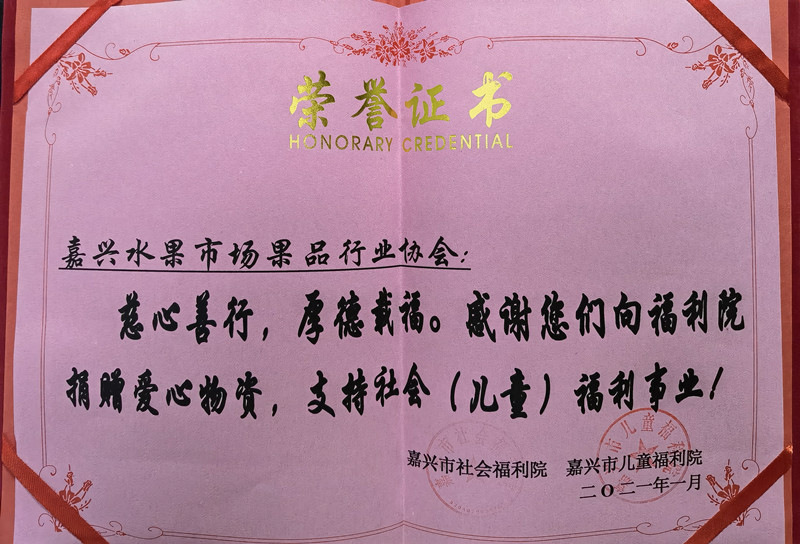 荣誉证书
HONORARY CREDENTIAL
嘉兴水果市场果品行业协会:
慈心善行，厚德载福。感谢您们向福利院
捐赠爱心物资，支持社会（儿童）福利事业！
嘉兴市社会福利院 嘉兴市儿童福利院
二〇二一年一月